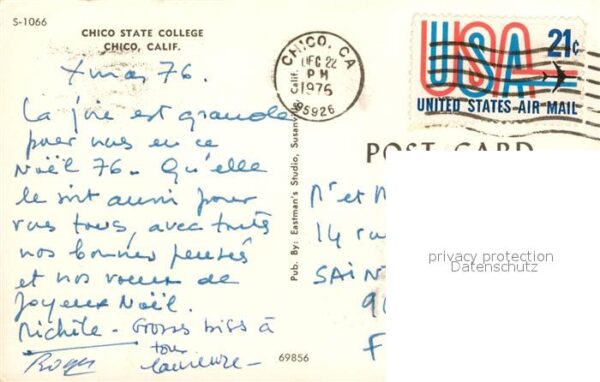 S-1066
CHICO STATE COLLEGE
CHICO, CALIF.
Xmas 76.
La joie est grande
pour nous en ce
Noël 76. Qu'elle
le soit aussi pour
vous tous, avec toutes
nos bonnes pensées
et nos voeux de
Joyeux Noël.
Michèle - Gross biss à
tous
Roger Laurence -
Pub. By: Eastman's Studio, Susanville, Calif.
69856
CHICO, CA
DEC 22
PM
1976
95926
USA 21c
UNITED STATES AIR MAIL
POST CARD
Mr et M
14 ru
SAIN
9
F
privacy protection
Datenschutz